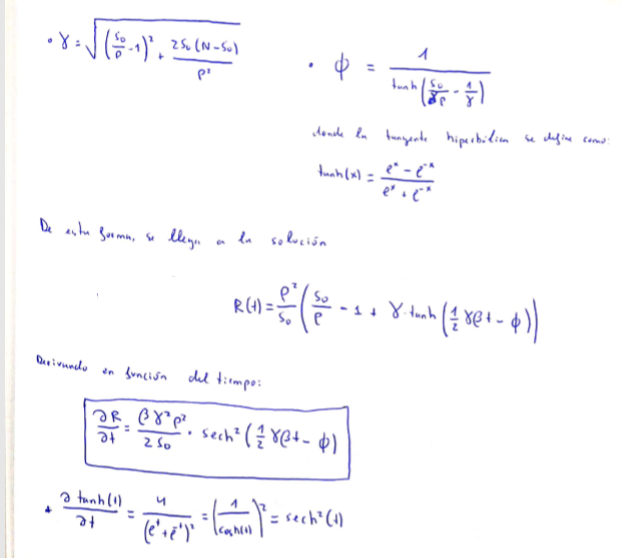 • γ = √((S₀/ρ - 1)² + 2S₀(N-S₀)/ρ²)
• ϕ = 1/tanh(S₀/γρ - 1/γ)
donde la tangente hiperbólica se define como:
tanh(x) = (eˣ - e⁻ˣ)/(eˣ + e⁻ˣ)
De esta forma, se llega a la solución
R(t) = ρ²/S₀ (S₀/ρ - 1 + γ · tanh(1/2 γβt - ϕ))
Derivando en función del tiempo:
∂R/∂t = βγ²ρ²/2S₀ · sech²(1/2 γβt - ϕ)
* ∂tanh(t)/∂t = 4/(eᵗ + e⁻ᵗ)² = (1/cosh(t))² = sech²(t)